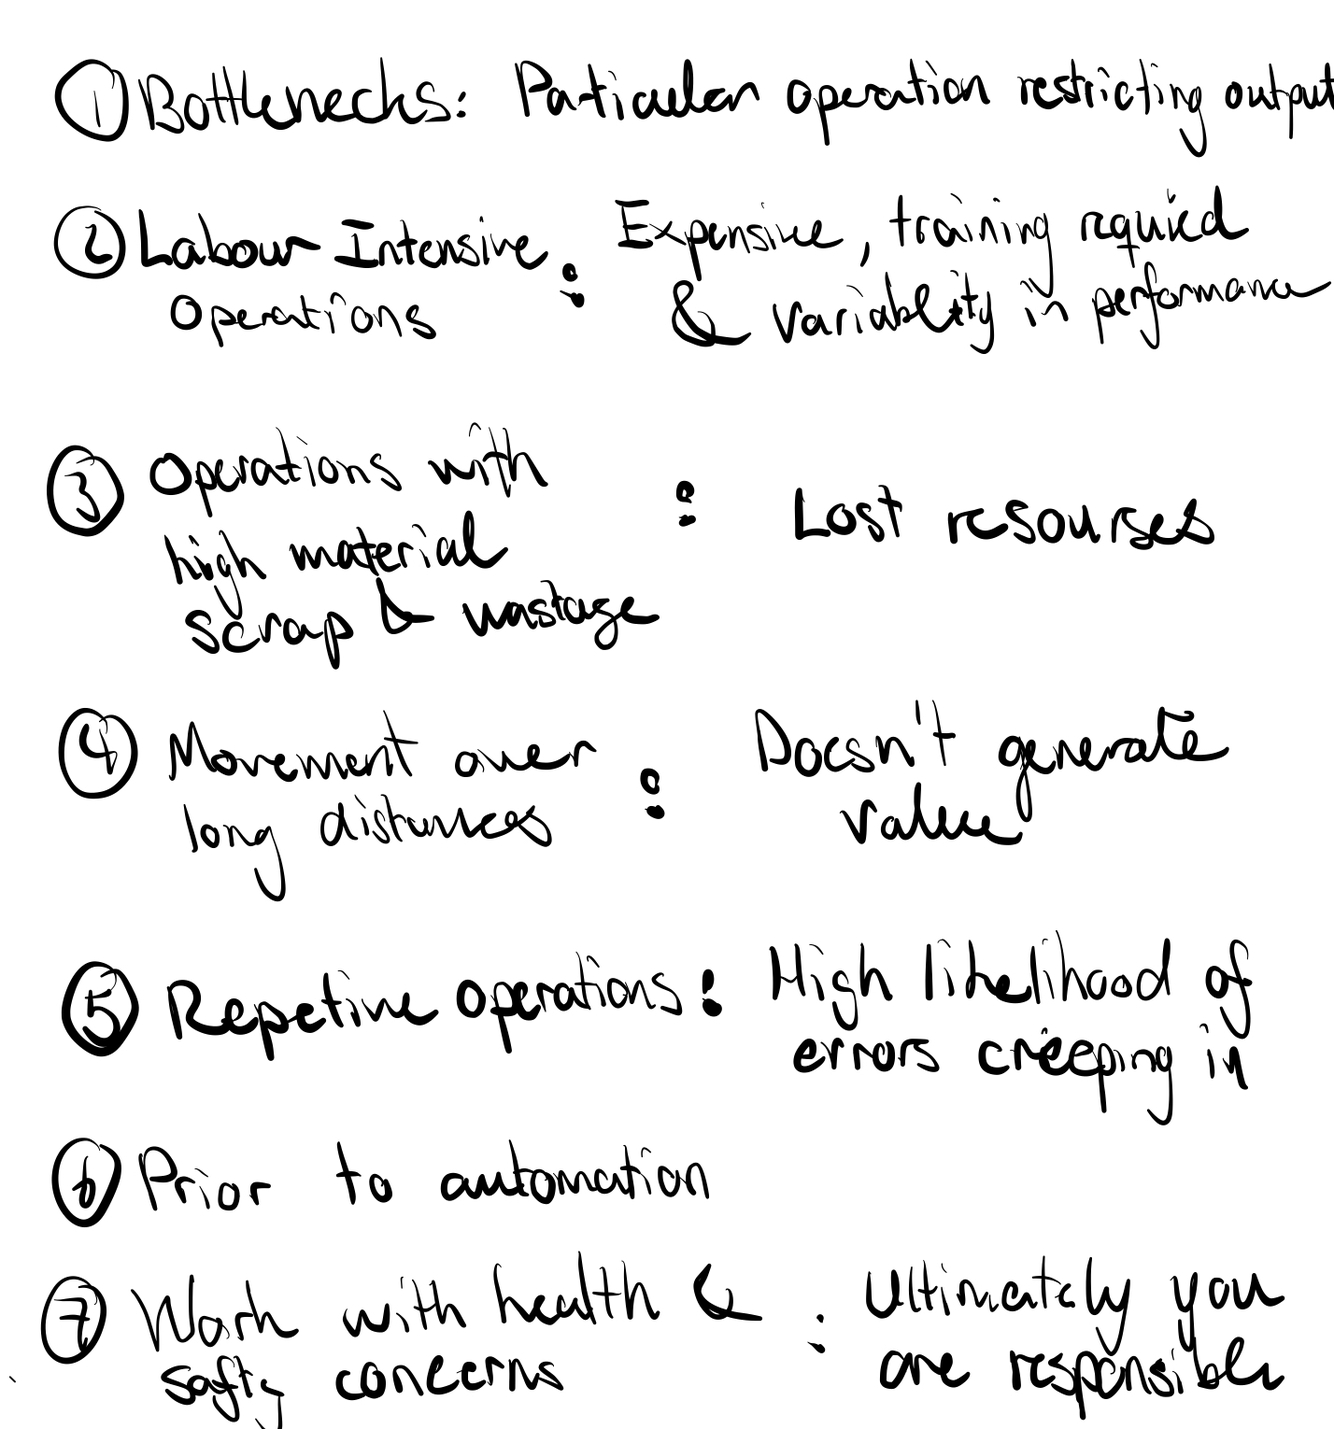 ① Bottlenecks: Particular operation restricting output
② Labour Intensive Operations : Expensive, training required
& variability in performance
③ Operations with
high material
scrap & wastage : Lost resourses
④ Movement over
long distances : Doesn't generate
value
⑤ Repetive operations : High likelihood of
errors creeping in
⑥ Prior to automation
⑦ Work with health &
safty concerns : Ultimately you
are responsible